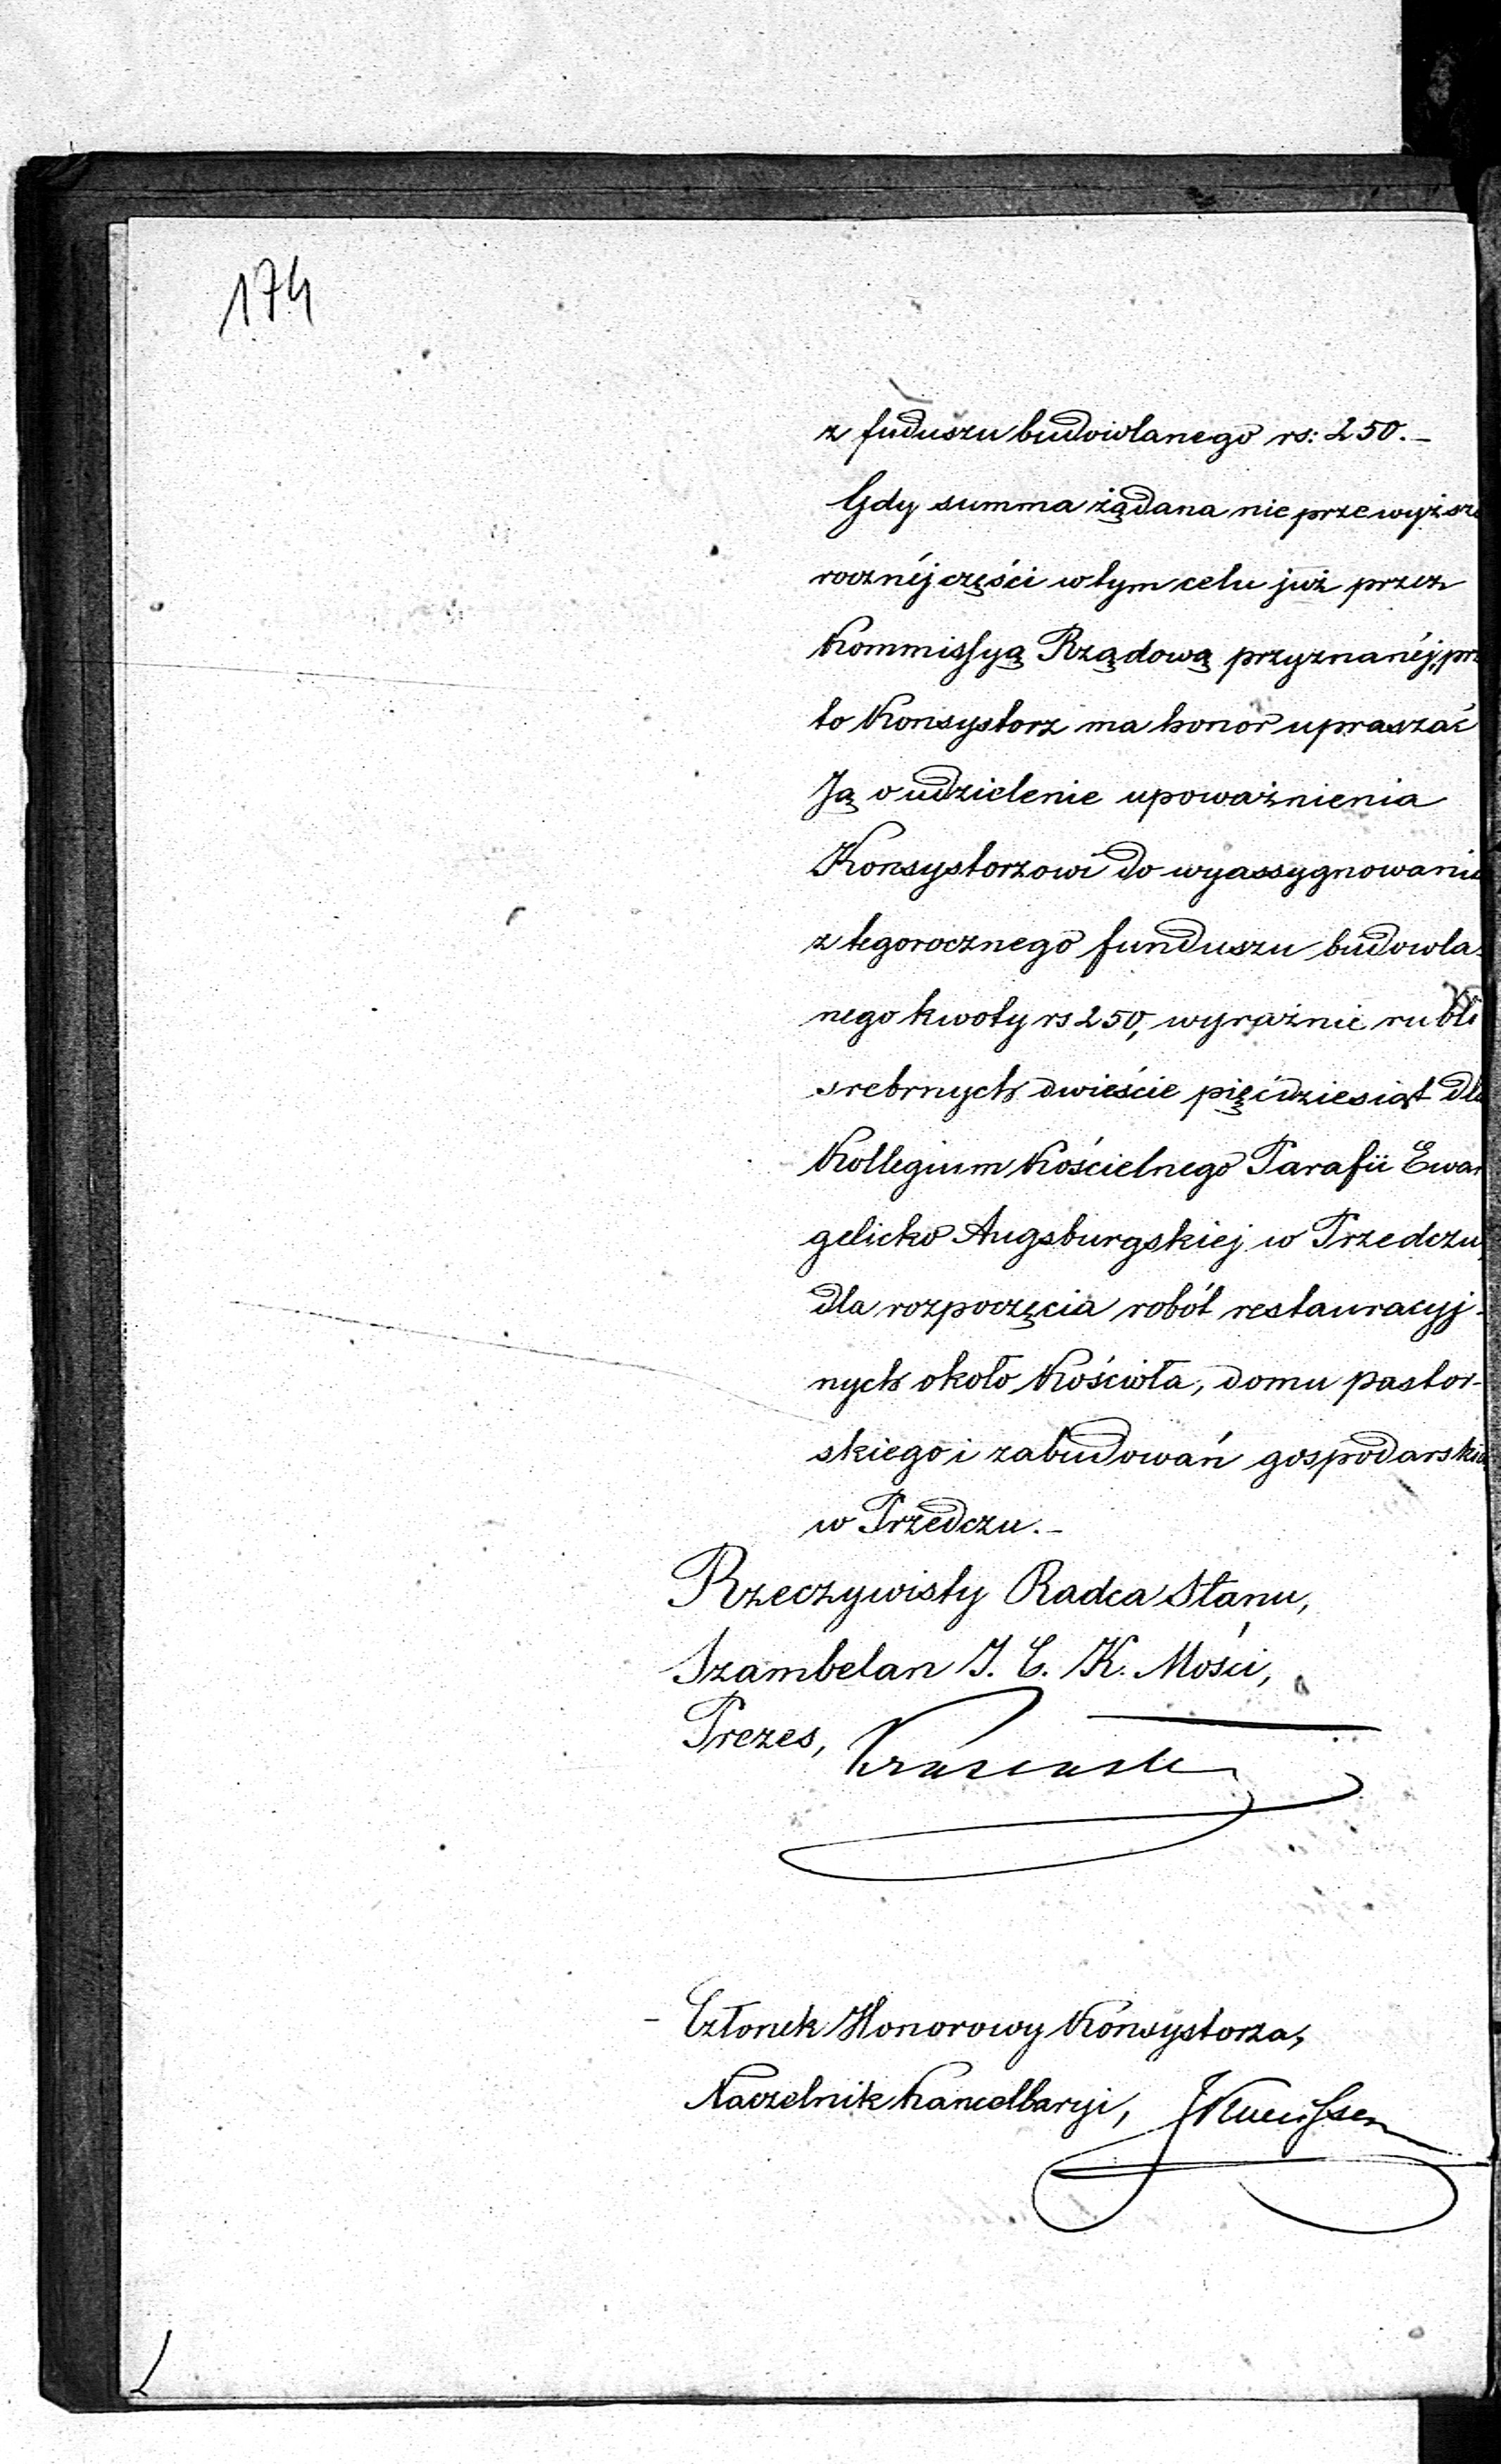 174
z fuduszu budowlanego rs: 250.-
Gdy summa żądana nie przewyższa
rocznéj części w tym celu już przez
Kommissyą Rządową przyznanéj, prze
to Konsystorz ma honor upraszać
Ją o udzielenie upoważnienia
Konsystorzowi do wyassygnowania
z tegorocznego funduszu budowla-
nego kwoty rs 250, wyraźnie rubli
srebrnych dwieście pięćdziesiąt dla
Kollegium Kościelnego Parafii Ewan
gelicko Augsburgskiej w Przedczu,
dla rozpoczęcia robót restauracyj-
nych około Kościoła, domu pastor-
skiego i zabudowań gospodarskich
w Przedczu.-
Rzeczywisty Radca Stanu,
Szambelan J. C. K. Mości,
Prezes,
Członek Honorowy Konsystorza,
Naczelnik Kancellaryi,